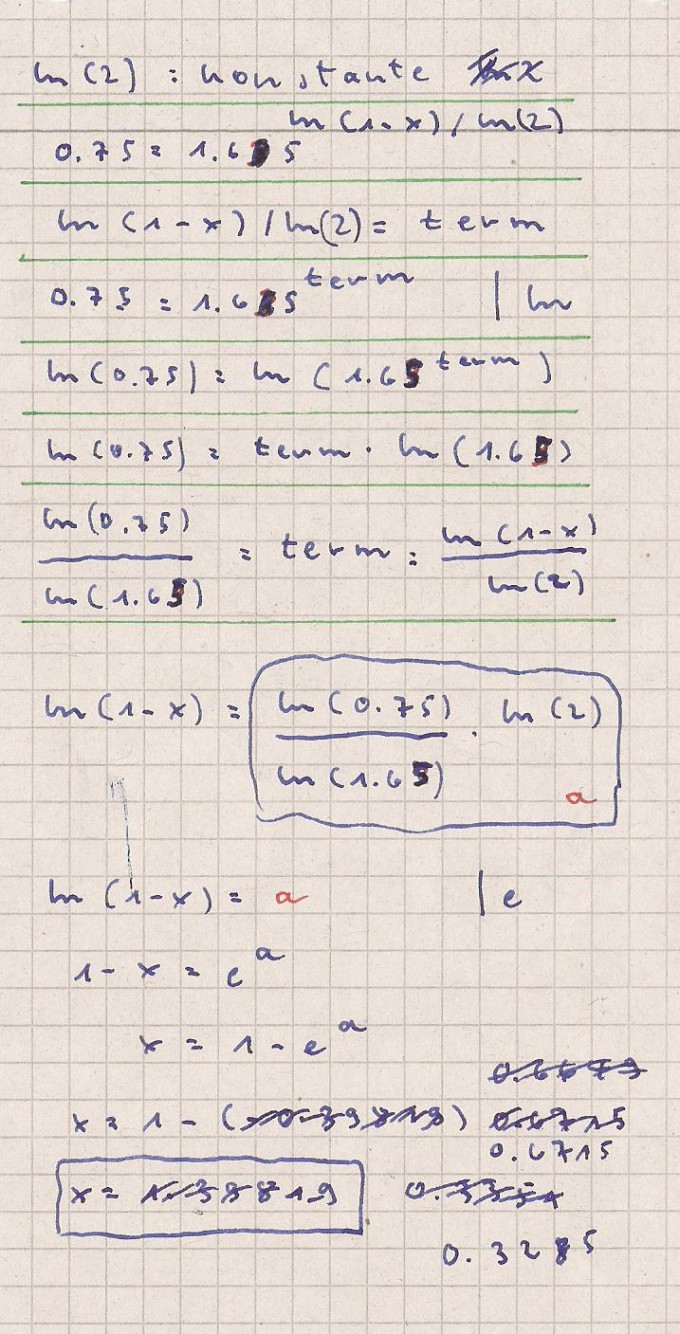 ln(2) = konstante x
ln(1-x)/ln(2)
0.75 = 1.65
ln(1-x)/ln(2) = term
0.75 = 1.65^term | ln
ln(0.75) = ln(1.65^term)
ln(0.75) = term · ln(1.65)
ln(0.75) / ln(1.65) = term = ln(1-x) / ln(2)
ln(1-x) = ln(0.75) / ln(1.65) · ln(2) a
ln(1-x) = a | e
1-x = e^a
x = 1-e^a
x = 1-( ) 0.6715
0.6715
x =
0.3285